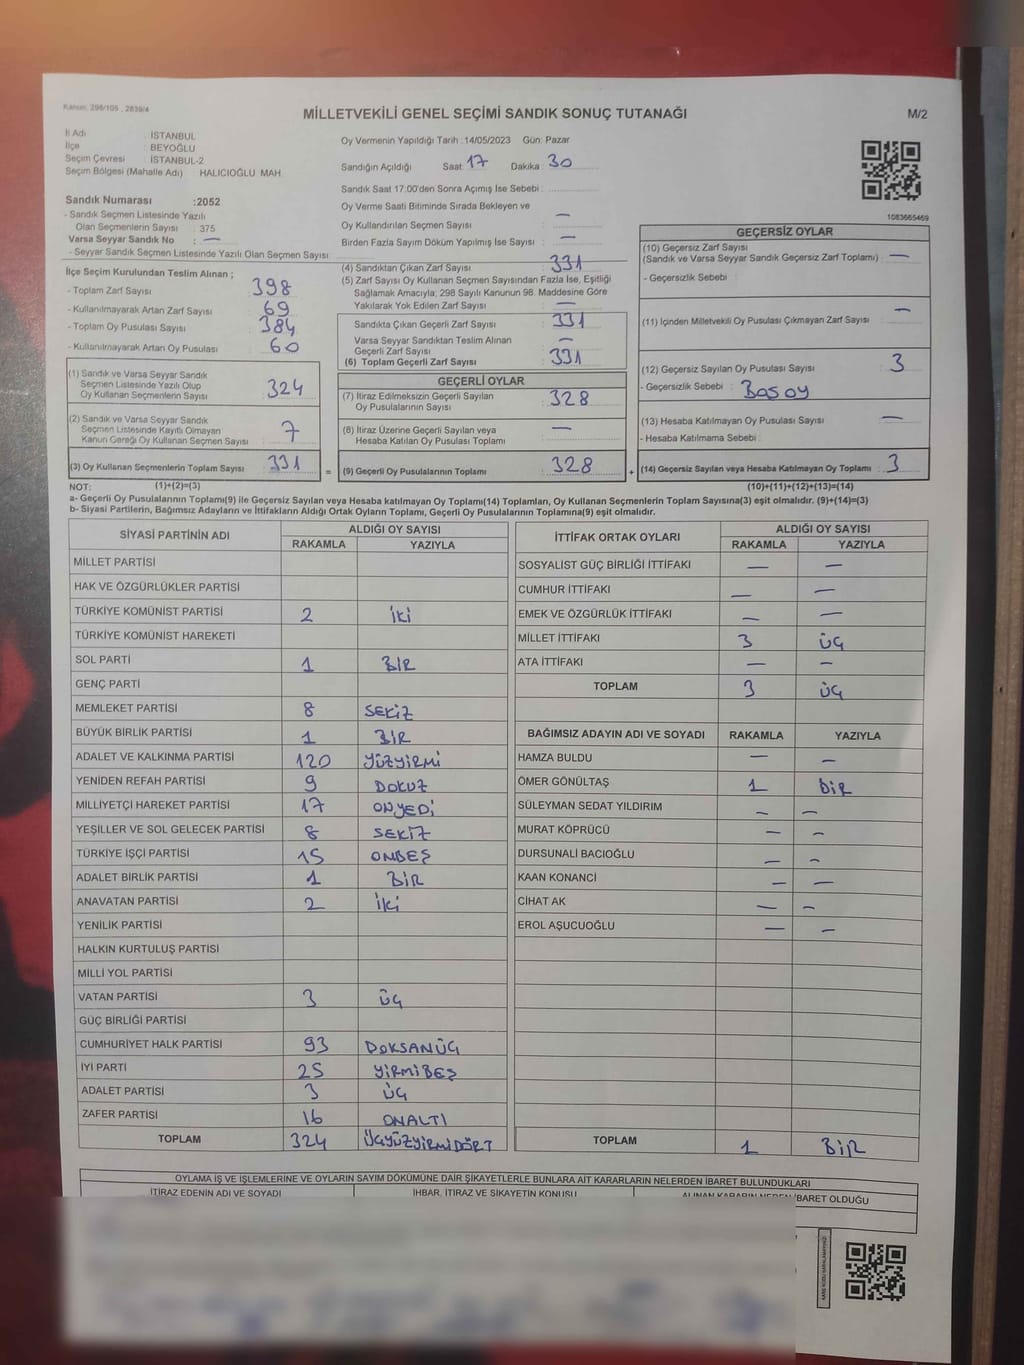 Kanun: 298/105 , 2839/4
MİLLETVEKİLİ GENEL SEÇİMİ SANDIK SONUÇ TUTANAĞI
M/2
İl Adı : İSTANBUL
İlçe : BEYOĞLU
Seçim Çevresi : İSTANBUL-2
Seçim Bölgesi (Mahalle Adı) HALICIOĞLU MAH
Sandık Numarası :2052
- Sandık Seçmen Listesinde Yazılı
Olan Seçmenlerin Sayısı : 375
Varsa Seyyar Sandık No : —
- Seyyar Sandık Seçmen Listesinde Yazılı Olan Seçmen Sayısı
Oy Vermenin Yapıldığı Tarih :14/05/2023 Gün: Pazar
Sandığın Açıldığı Saat: 17 Dakika: 30
Sandık Saat 17:00'den Sonra Açımış İse Sebebi :
Oy Verme Saati Bitiminde Sırada Bekleyen ve
Oy Kullandırılan Seçmen Sayısı : —
Birden Fazla Sayım Döküm Yapılmış İse Sayısı : —
1083665469
İlçe Seçim Kurulundan Teslim Alınan ;
- Toplam Zarf Sayısı : 398
- Kullanılmayarak Artan Zarf Sayısı : 69
- Toplam Oy Pusulası Sayısı : 384
- Kullanılmayarak Artan Oy Pusulası : 60
(1) Sandık ve Varsa Seyyar Sandık
Seçmen Listesinde Yazılı Olup
Oy Kullanan Seçmenlerin Sayısı : 324
(2) Sandık ve Varsa Seyyar Sandık
Seçmen Listesinde Kayıtlı Olmayan
Kanun Gereği Oy Kullanan Seçmen Sayısı : 7
(3) Oy Kullanan Seçmenlerin Toplam Sayısı : 331
(4) Sandıktan Çıkan Zarf Sayısı : 331
(5) Zarf Sayısı Oy Kullanan Seçmen Sayısından Fazla İse, Eşitliği
Sağlamak Amacıyla, 298 Sayılı Kanunun 98. Maddesine Göre
Yakılarak Yok Edilen Zarf Sayısı : —
Sandıkta Çıkan Geçerli Zarf Sayısı : 331
Varsa Seyyar Sandıktan Teslim Alınan
Geçerli Zarf Sayısı : —
(6) Toplam Geçerli Zarf Sayısı : 331
GEÇERLİ OYLAR
(7) İtiraz Edilmeksizin Geçerli Sayılan
Oy Pusulalarının Sayısı : 328
(8) İtiraz Üzerine Geçerli Sayılan veya
Hesaba Katılan Oy Pusulası Toplamı : —
= (9) Geçerli Oy Pusulalarının Toplamı : 328
GEÇERSİZ OYLAR
(10) Geçersiz Zarf Sayısı
(Sandık ve Varsa Seyyar Sandık Geçersiz Zarf Toplamı) : —
- Geçersizlik Sebebi :
(11) İçinden Milletvekili Oy Pusulası Çıkmayan Zarf Sayısı : —
(12) Geçersiz Sayılan Oy Pusulası Sayısı : 3
- Geçersizlik Sebebi : Boş oy
(13) Hesaba Katılmayan Oy Pusulası Sayısı : —
- Hesaba Katılmama Sebebi :
+ (14) Geçersiz Sayılan veya Hesaba Katılmayan Oy Toplamı : 3
NOT: (1)+(2)=(3)
(10)+(11)+(12)+(13)=(14)
a- Geçerli Oy Pusulalarının Toplamı(9) ile Geçersiz Sayılan veya Hesaba katılmayan Oy Toplamı(14) Toplamları, Oy Kullanan Seçmenlerin Toplam Sayısına(3) eşit olmalıdır. (9)+(14)=(3)
b- Siyasi Partilerin, Bağımsız Adayların ve İttifakların Aldığı Ortak Oyların Toplamı, Geçerli Oy Pusulalarının Toplamına(9) eşit olmalıdır.
SİYASİ PARTİNİN ADI ALDIĞI OY SAYISI
RAKAMLA YAZIYLA
MİLLET PARTİSİ
HAK VE ÖZGÜRLÜKLER PARTİSİ
TÜRKİYE KOMÜNİST PARTİSİ 2 İki
TÜRKİYE KOMÜNİST HAREKETİ
SOL PARTİ 1 BİR
GENÇ PARTİ
MEMLEKET PARTİSİ 8 SEKİZ
BÜYÜK BİRLİK PARTİSİ 1 BİR
ADALET VE KALKINMA PARTİSİ 120 YÜZYİRMİ
YENİDEN REFAH PARTİSİ 9 DOKUZ
MİLLİYETÇİ HAREKET PARTİSİ 17 ONYEDİ
YEŞİLLER VE SOL GELECEK PARTİSİ 8 SEKİZ
TÜRKİYE İŞÇİ PARTİSİ 15 ONBEŞ
ADALET BİRLİK PARTİSİ 1 BİR
ANAVATAN PARTİSİ 2 İki
YENİLİK PARTİSİ
HALKIN KURTULUŞ PARTİSİ
MİLLİ YOL PARTİSİ
VATAN PARTİSİ 3 ÜÇ
GÜÇ BİRLİĞİ PARTİSİ
CUMHURİYET HALK PARTİSİ 93 DOKSANÜÇ
İYİ PARTİ 25 YİRMİBEŞ
ADALET PARTİSİ 3 ÜÇ
ZAFER PARTİSİ 16 ONALTI
TOPLAM 324 ÜÇYÜZYİRMİDÖRT
İTTİFAK ORTAK OYLARI ALDIĞI OY SAYISI
RAKAMLA YAZIYLA
SOSYALİST GÜÇ BİRLİĞİ İTTİFAKI — —
CUMHUR İTTİFAKI — —
EMEK VE ÖZGÜRLÜK İTTİFAKI — —
MİLLET İTTİFAKI 3 ÜÇ
ATA İTTİFAKI — —
TOPLAM 3 ÜÇ
BAĞIMSIZ ADAYIN ADI VE SOYADI RAKAMLA YAZIYLA
HAMZA BULDU — —
ÖMER GÖNÜLTAŞ 1 BİR
SÜLEYMAN SEDAT YILDIRIM — —
MURAT KÖPRÜCÜ — —
DURSUNALİ BACIOĞLU — —
KAAN KONANCİ — —
CİHAT AK — —
EROL AŞUCUOĞLU — —
TOPLAM 1 BİR
OYLAMA İŞ VE İŞLEMLERİNE VE OYLARIN SAYIM DÖKÜMÜNE DAİR ŞİKAYETLERLE BUNLARA AİT KARARLARIN NELERDEN İBARET BULUNDUKLARI
İTİRAZ EDENİN ADI VE SOYADI İHBAR, İTİRAZ VE ŞİKAYETİN KONUSU ALINAN KARARIN NEDEN İBARET OLDUĞU